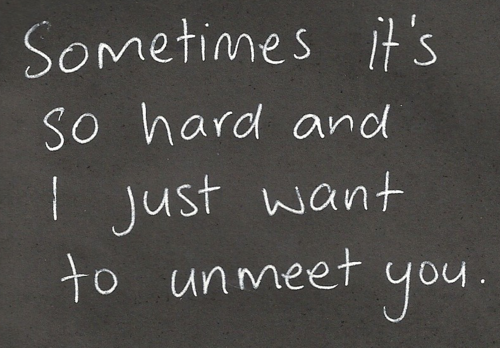 Sometimes it's
so hard and
I just want
to unmeet you.